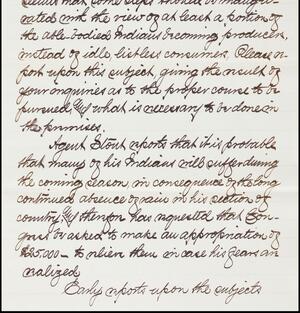 result that some steps should be inaugu-
rated with the view of at least a portion of
the able bodied Indians becoming producers,
instead of idle, listless consumers. Please re-
port upon this subject, giving the result of
your enquiries as to the proper course to be
pursued, & what is necessary to be done in
the premises.
Agent Stout reports that it is probable
that many of his Indians will suffer during
the coming season, in consequence of the long
continued absence of rain in his section of
country, & therefore has requested that Con-
gress be asked to make an appropriation of
$25.000— to relieve them in case his fears are
realized
Early reports upon the subjects